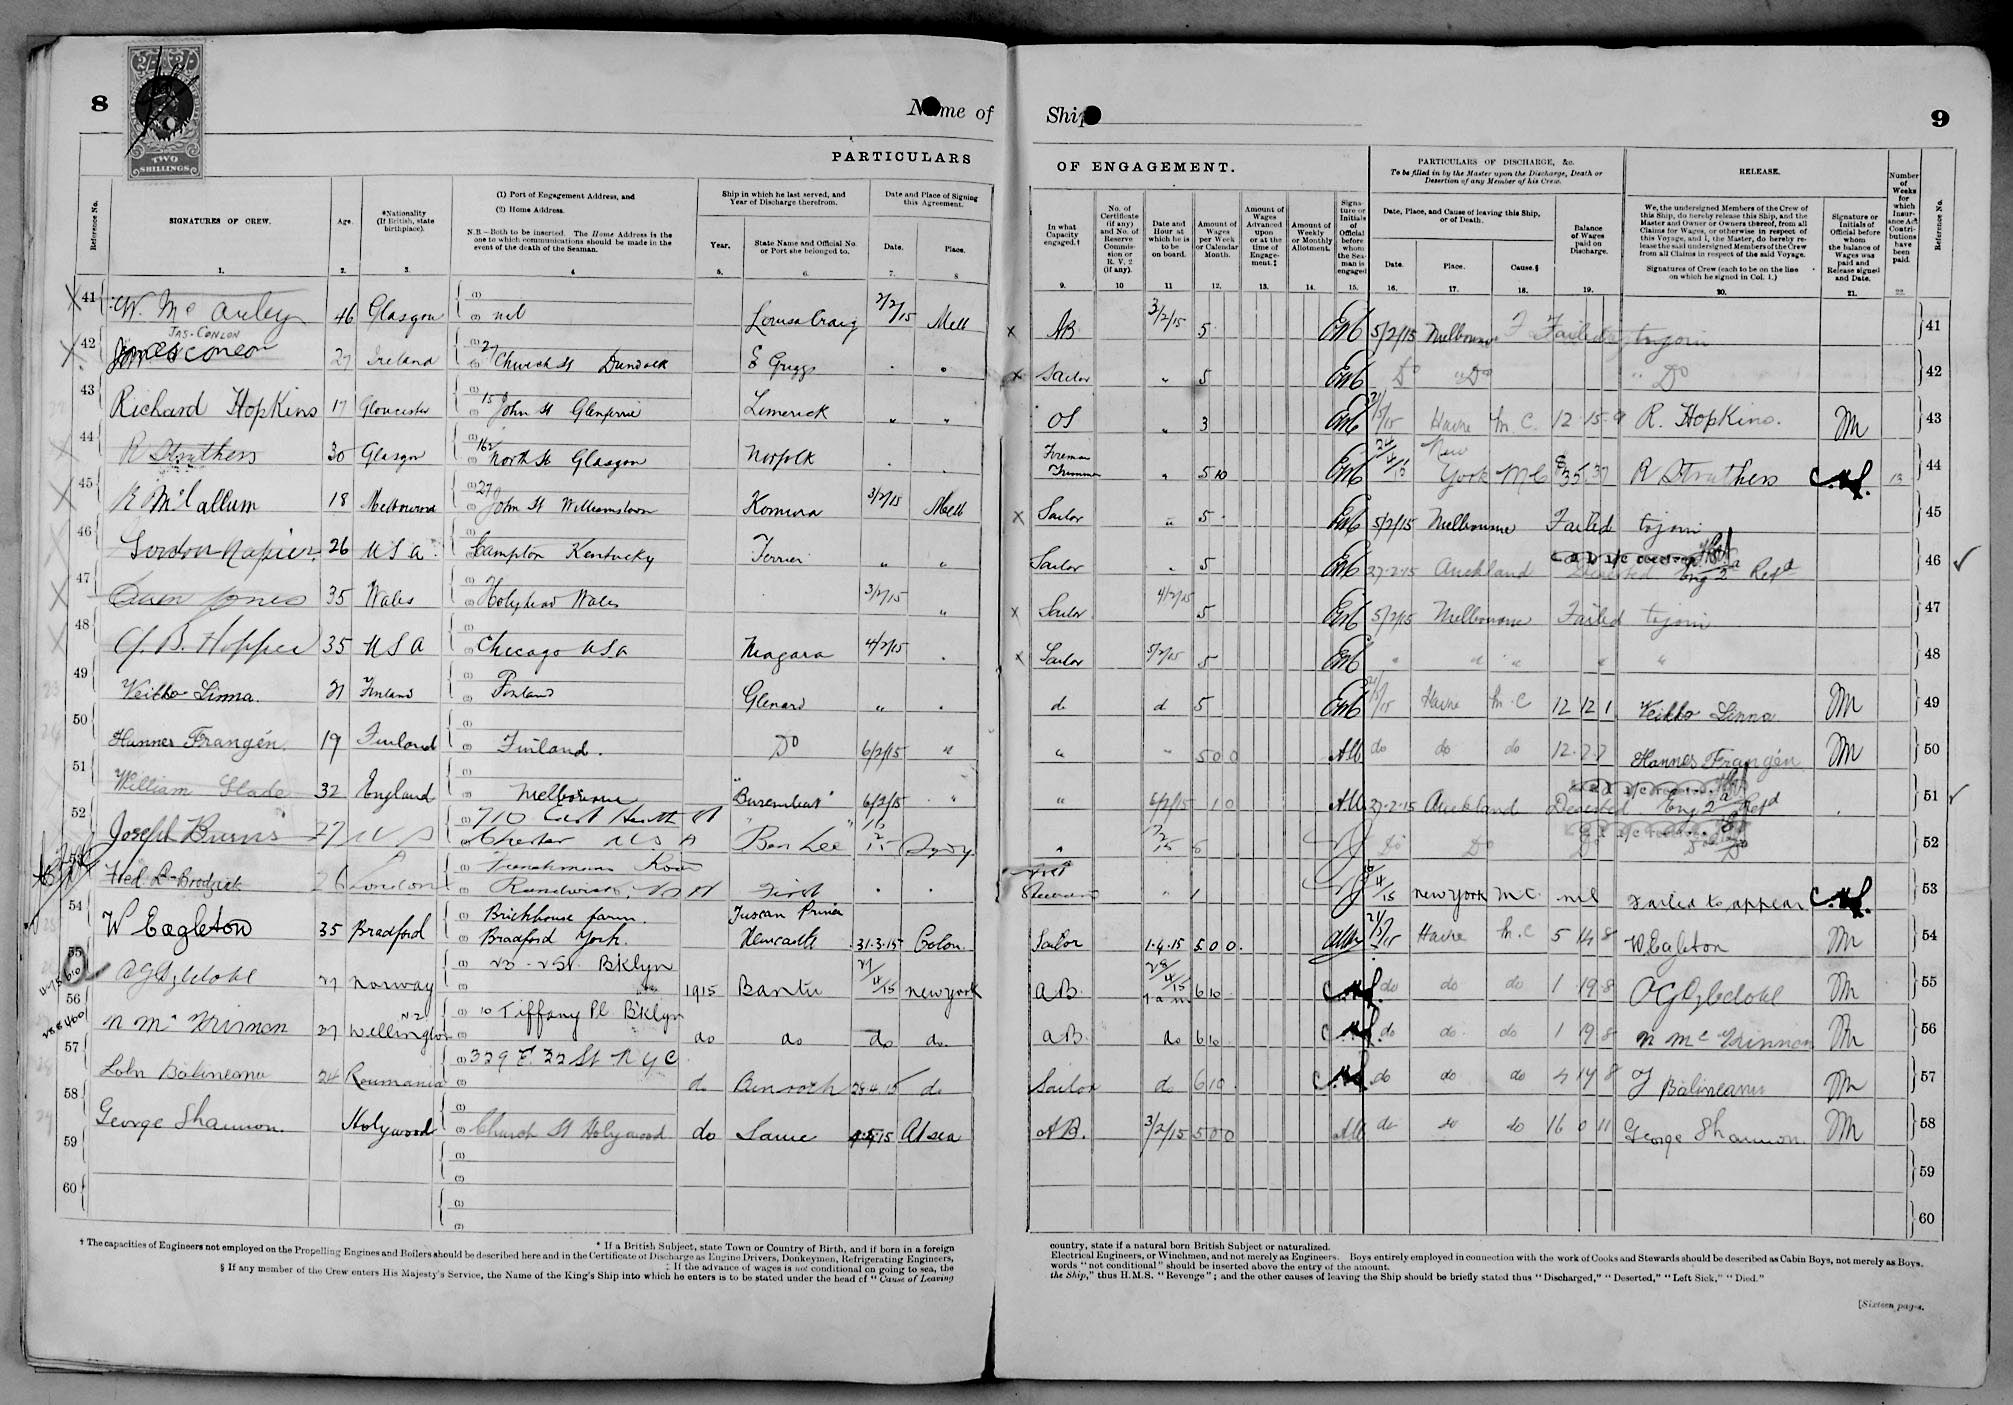 8
2/- 2/-
TWO
SHILLINGS
Name of
Ship
9
PARTICULARS
OF ENGAGEMENT.
PARTICULARS OF DISCHARGE, &c.
To be filled in by the Master upon the Discharge, Death or Desertion of any Member of his Crew.
RELEASE.
Reference No.
SIGNATURES OF CREW.
Age.
*Nationality (If British, state birthplace).
(1) Port of Engagement Address, and
(2) Home Address.
N.B.—Both to be inserted. The Home Address is the one to which communications should be made in the event of the death of the Seaman.
Ship in which he last served, and Year of Discharge therefrom.
Year.
State Name and Official No. or Port she belonged to.
Date and Place of Signing this Agreement.
Date.
Place.
In what Capacity engaged.†
No. of Certificate (if any) and No. of Reserve Commission or R.V.2 (if any).
Date and Hour at which he is to be on board.
Amount of Wages per Week or Calendar Month.
Amount of Wages Advanced upon or at the time of Engagement.‡
Amount of Weekly or Monthly Allotment.
Signature or Initials of Official before whom the Seaman is engaged
Date, Place, and Cause of leaving this Ship, or of Death.
Date.
Place.
Cause.§
Balance of Wages paid on Discharge.
We, the undersigned Members of the Crew of this Ship, do hereby release this Ship, and the Master and Owner or Owners thereof, from all Claims for Wages, or otherwise in respect of this Voyage, and I, the Master, do hereby release the said undersigned Members of the Crew from all Claims in respect of the said Voyage.
Signatures of Crew (each to be on the line on which he signed in Col. 1.)
Signature or Initials of Official before whom the balance of Wages was Paid and Release signed and Date.
Number of Weeks for which Insurance Act Contributions have been paid.
Reference No.
1. 2. 3. 4 5. 6. 7. 8 9. 10 11 12. 13. 14. 15. 16. 17. 18. 19. 20. 21. 22.
41 W. Mc Auley 46 Glasgow nil Louisa Craig 2/2/15 Melb AB 3/2/15 5 5/2/15 Melbourne Failed to join 41
JAS. CONLON
42 James Conlon 27 Ireland 27 Church St Dundalk E Griggs Sailor " 5 Do Do " Do 42
43 Richard Hopkins 17 Gloucester 15 John St Glenferrie Limerick " " OS " 3 Havre M.C. 12 15 9 R. Hopkins. 43
44 R Struthers 30 Glasgow North St Glasgow Norfolk Fireman Trimmer " 5 10 24/4/15 New York M C R Struthers 13 44
45 R McCallum 18 Melbourne 27 John St Williamstown Komura 3/2/15 Melb Sailor " 5 5/2/15 Melbourne Failed to join 45
46 Gordon Napier 26 U S A Campton Kentucky " " Sailor " 5 27.2.15 Auckland Deserted Regd 46
47 Owen Jones 35 Wales Holyhead Wales 3/2/15 " Sailor 4/2/15 5 5/2/15 Melbourne Failed to join 47
48 35 U S A Chicago USA Niagara 4/2/15 Sailor 5/2/15 5 " " " 48
49 Veikko Linna. 21 Finland Finland Glenard " do do 5 Havre M.C 12 12 1 Veikko Linna 49
50 Hannes Frangén. 19 Finland Finland. Do 6/2/15 " " " 5 0 0 do do do 12 7 7 Hannes Frangén 50
51 William Slade 32 England Melbourne 6/2/15 " " 6/2/15 10 27.2.15 Auckland Deserted Regd 51
52 Joseph Burns 27 U S A Chester U S A Ben Lee Do Do Do 52
Fred. 26 London Frenchmans Road Randwick First Steward " 1 New York M.C. nil Failed to appear 53
54 W Eagleton 35 Bradford Brickhouse farm. Bradford York. Tuscan Prince Newcastle 31.3.15 Colon. Sailor 1.4.15 5 0 0 Havre M.C 5 14 8 W Eagleton 54
55 27 Norway B'klyn 1915 Bantu 27/4/15 New York A B. 28/4/15 7 am 6 10 do do do 1 19 8 55
56 27 Wellington NZ 10 Tiffany Pl B'klyn do do do do A B. do 6 10 do do do 1 19 8 56
57 John Balineanu 24 Roumania 329 E 32 St N Y C do 28 4 15 do Sailor do 6 10 do do do 19 8 J Balineanu 57
58 George Shannon. Holywood Church St Holywood do Same At sea A B. 3/2/15 5 0 0 do do do 16 0 11 George Shannon. 58
59 59
60 60
† The capacities of Engineers not employed on the Propelling Engines and Boilers should be described here and in the Certificate of Discharge as Engine Drivers, Donkeymen, Refrigerating Engineers,
* If a British Subject, state Town or Country of Birth, and if born in a foreign
‡ If the advance of wages is not conditional on going to sea, the
§ If any member of the Crew enters His Majesty's Service, the Name of the King's Ship into which he enters is to be stated under the head of "Cause of Leaving
country, state if a natural born British Subject or naturalized.
Electrical Engineers, or Winchmen, and not merely as Engineers. Boys entirely employed in connection with the work of Cooks and Stewards should be described as Cabin Boys, not merely as Boys.
words "not conditional" should be inserted above the entry of the amount.
the Ship," thus H.M.S. "Revenge"; and the other causes of leaving the Ship should be briefly stated thus "Discharged," "Deserted," "Left Sick," "Died."
[Sixteen pages.